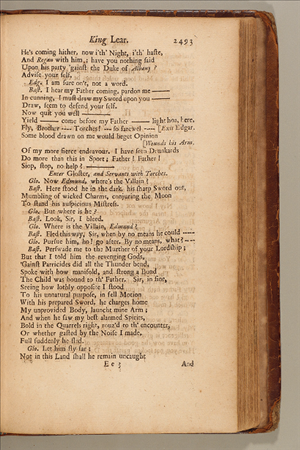 King Lear. 2493
He's coming hither, now i'th' Night, i'th' haste,
And Regan with him; have you nothing said
Upon his party 'gainst the Duke of Albany?
Advise your self.
Edg. I am sure on't, not a word.
Bast. I hear my Father coming, pardon me ———
In cunning, I must draw my Sword upon you ———
Draw, seem to defend your self.
Now quit you well ———
Yield ——— come before my Father ——— light hoa, here,
Fly, Brother ——— Torches! ——— so farewel. ——— [Exit Edgar.
Some blood drawn on me would beget Opinion
[Wounds his Arm.
Of my more fierce endeavour. I have seen Drunkards
Do more than this in Sport; Father! Father!
Stop, stop, no help? ———
Enter Gloster, and Servants with Torches.
Glo. Now Edmund, where's the Villain?
Bast. Here stood he in the dark, his sharp Sword out,
Mumbling of wicked Charms, conjuring the Moon
To stand his auspicious Mistress.
Glo. But where is he?
Bast. Look, Sir, I bleed.
Glo. Where is the Villain, Edmund?
Bast. Fled this way, Sir, when by no means he could ——
Glo. Pursue him, ho! go after. By no means, what? ——
Bast. Perswade me to the Murther of your Lordship;
But that I told him the revenging Gods,
'Gainst Parricides did all the Thunder bend,
Spoke with how manifold, and strong a Bond
The Child was bound to th' Father. Sir, in fine,
Seeing how lothly opposite I stood
To his unnatural purpose, in fell Motion
With his prepared Sword, he charges home
My unprovided Body, launcht mine Arm;
And when he saw my best alarmed Spirits,
Bold in the Quarrels right, rouz'd to th' encounter,
Or whether gasted by the Noise I made,
Full suddenly he fled.
Glo. Let him fly far;
Not in this Land shall he remain uncaught
E e 3 And